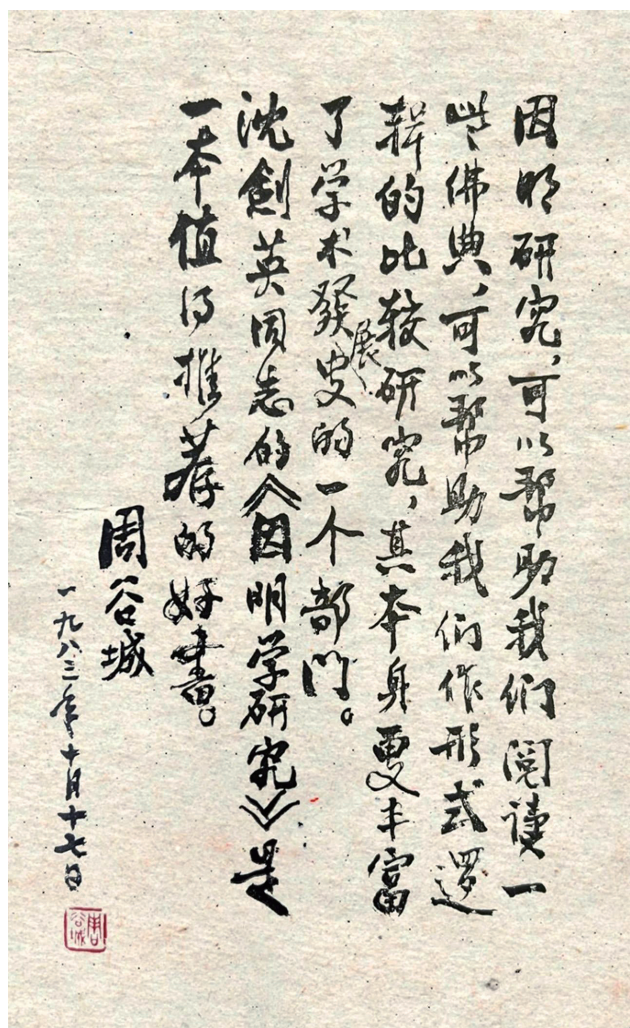 因明研究，可以帮助我们閲讀一
些佛典，可以帮助我们作形式逻
辑的比较研究，其本身更丰富
了学术發展史的一个部门。
沈劍英同志的《因明学研究》是
一本值得推荐的好書。
周谷城
一九八三年十月十七日
周谷城